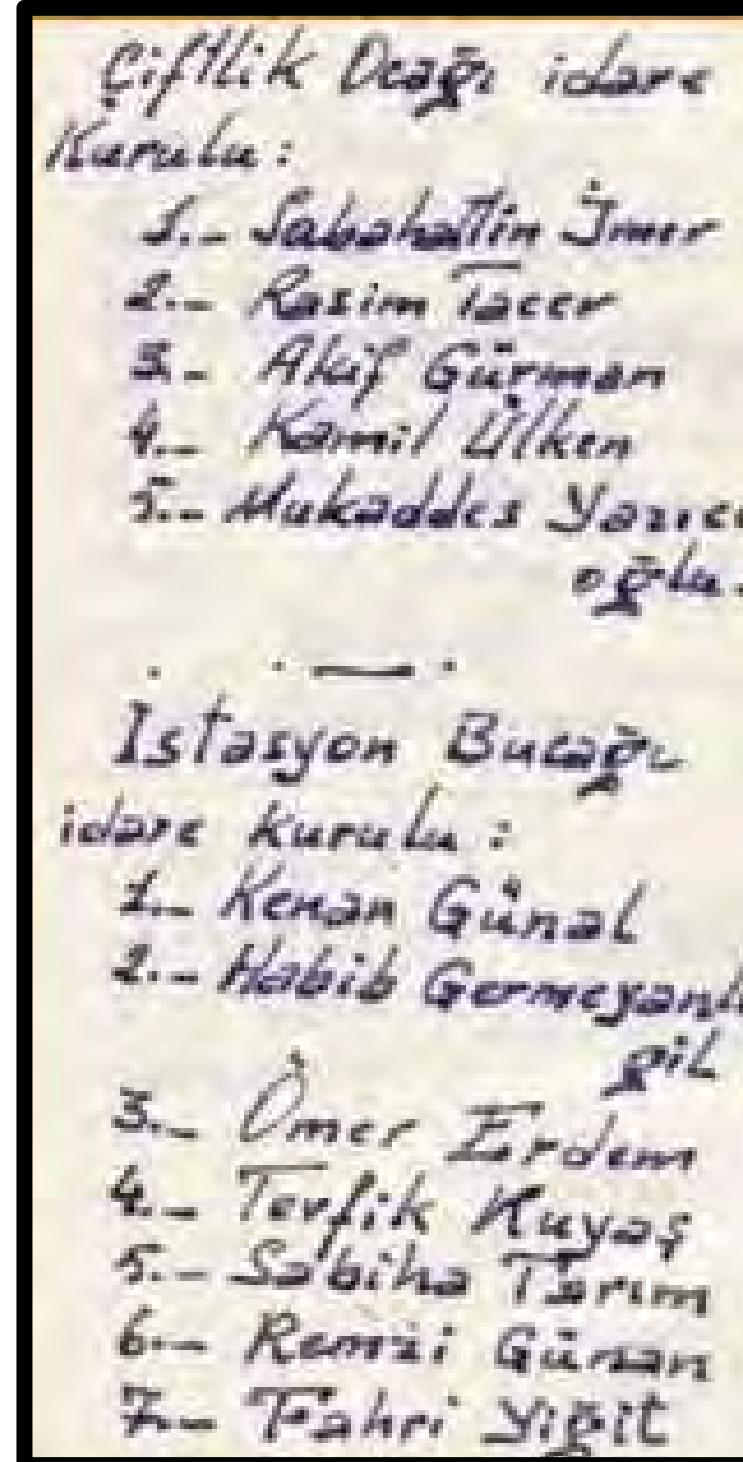 Çiftlik Ocağı idare
Kurulu:
1.- Sabahattin İmer
2.- Rasim Tacer
3.- Akif Gürman
4.- Kamil Ülken
5.- Mukaddes Yazıcı
oğlu.
İstasyon Bucağı
idare kurulu:
1.- Kenan Günal
2.- Habib Germeyanlı
gil
3.- Ömer Erdem
4.- Tevfik Kuyaş
5.- Sabiha Tarım
6.- Remzi Günan
7.- Fahri Yiğit